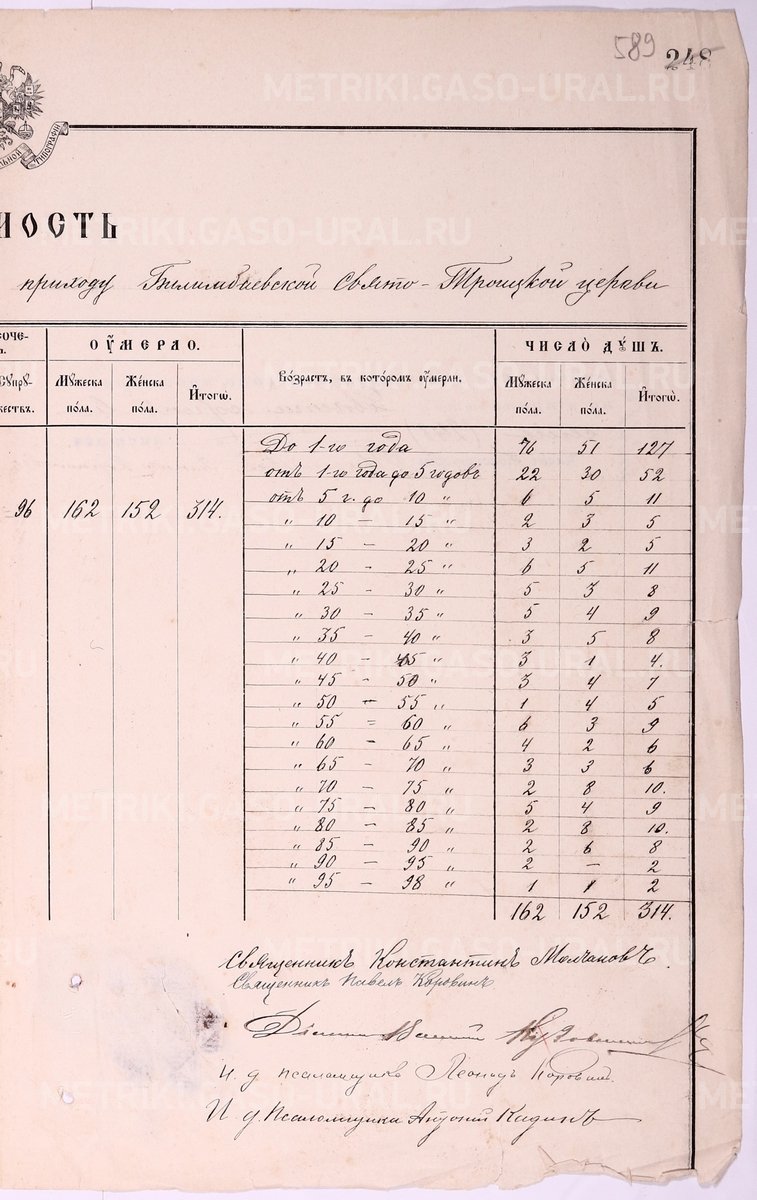 589 248
МОСТЬ
приходу Билимбаевской Свято-Троицкой церкви
ОУМЕРЛО. Возрастъ, въ которомъ оумерли. ЧИСЛО ДУШЪ.
Мужеска пола. Женска пола. Итогѡ. Мужеска пола. Женска пола. Итогѡ.
До 1-го года 76 51 127
отъ 1-го года до 5 годовъ 22 30 52
отъ 5 г. до 10 " 6 5 11
96 162 152 314.
" 10 - 15 " 2 3 5
" 15 - 20 " 3 2 5
" 20 - 25 " 6 5 11
" 25 - 30 " 5 3 8
" 30 - 35 " 5 4 9
" 35 - 40 " 3 5 8
" 40 - 45 " 3 1 4.
" 45 - 50 " 3 4 7
" 50 - 55 " 1 4 5
" 55 = 60 " 6 3 9
" 60 - 65 " 4 2 6
" 65 - 70 " 3 3 6
" 70 - 75 " 2 8 10.
" 75 - 80 " 5 4 9
" 80 - 85 " 2 8 10.
" 85 - 90 " 2 6 8
" 90 - 95 " 2 - 2
" 95 - 98 " 1 1 2
162 152 314.
Священникъ Константинъ Молчановъ.
Священникъ Павелъ Коровинъ
И. д. псаломщика Леонидъ Коровин.
И. д. Псаломщика Антоній Кидинъ
METRIKI.GASO-URAL.RU